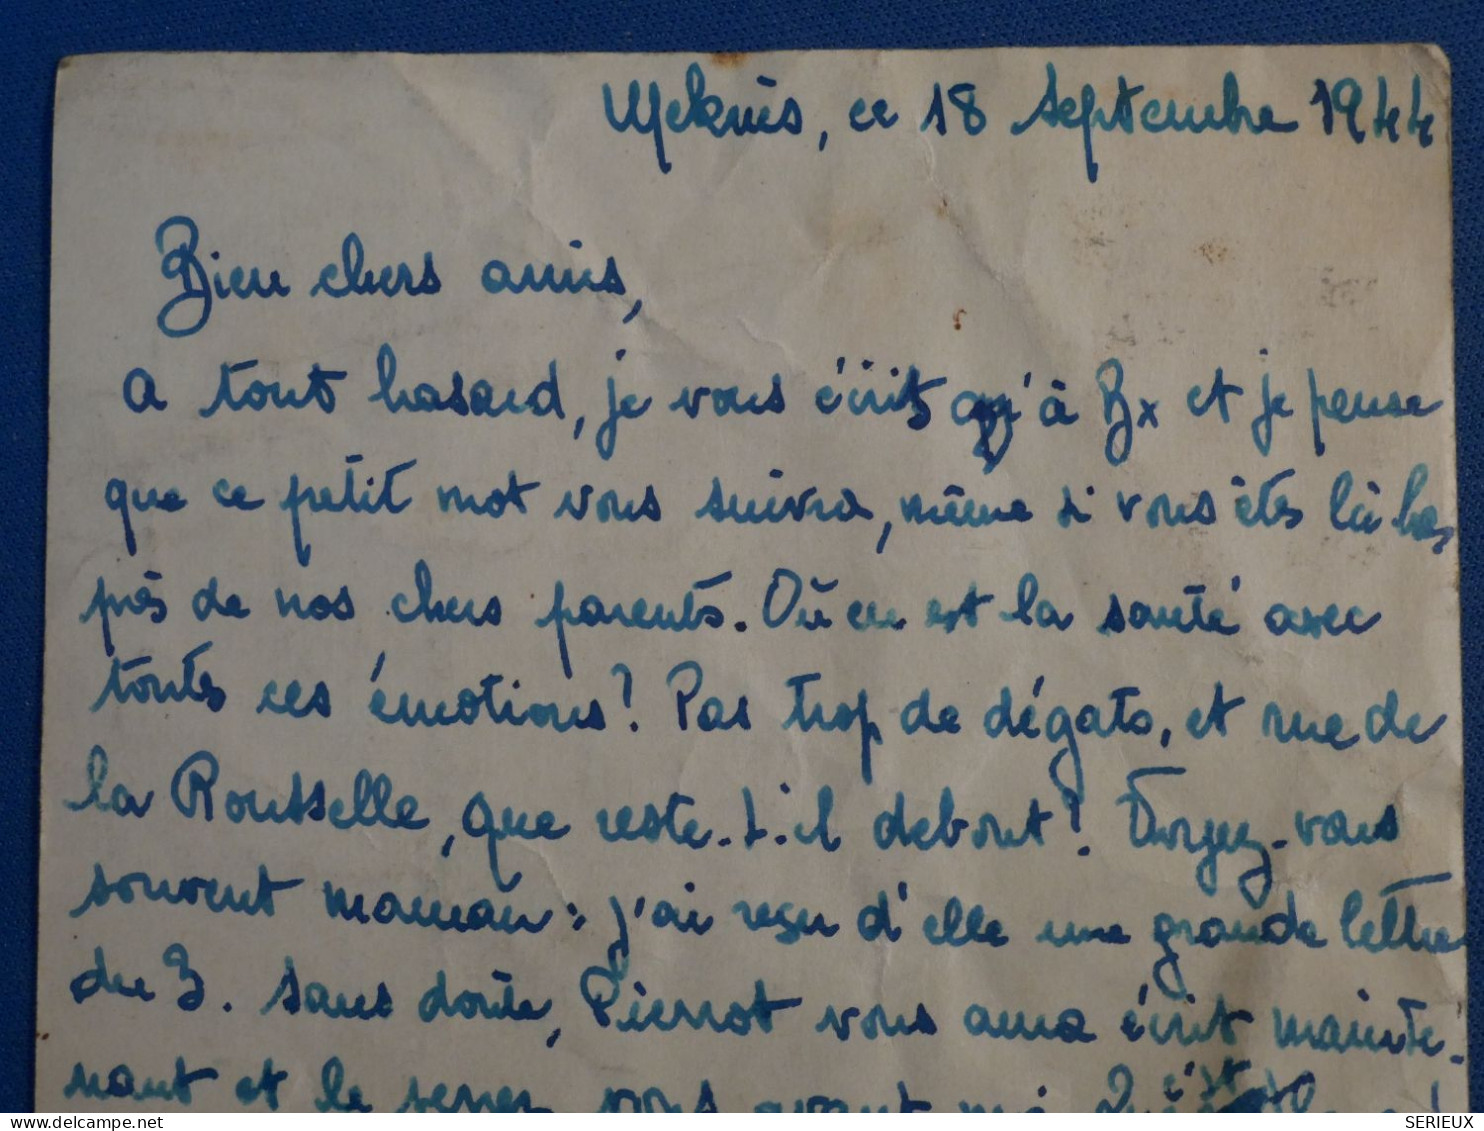 Meknès, ce 18 septembre 1944
Bien chers amis,
A tout hasard, je vous écris qu'à Bx et je pense
que ce petit mot vous suivra, même si vous êtes là-bas,
près de nos chers parents. Où en est la santé avec
toutes ces émotions? Pas trop de dégats, et rue de
la Rousselle, que reste-t-il debout? Voyez-vous
souvent maman: j'ai reçu d'elle une grande lettre
du 3. Sans doute, Pierrot vous aura écrit mainte-
nant et le serez vous avant moi
SERIEUX